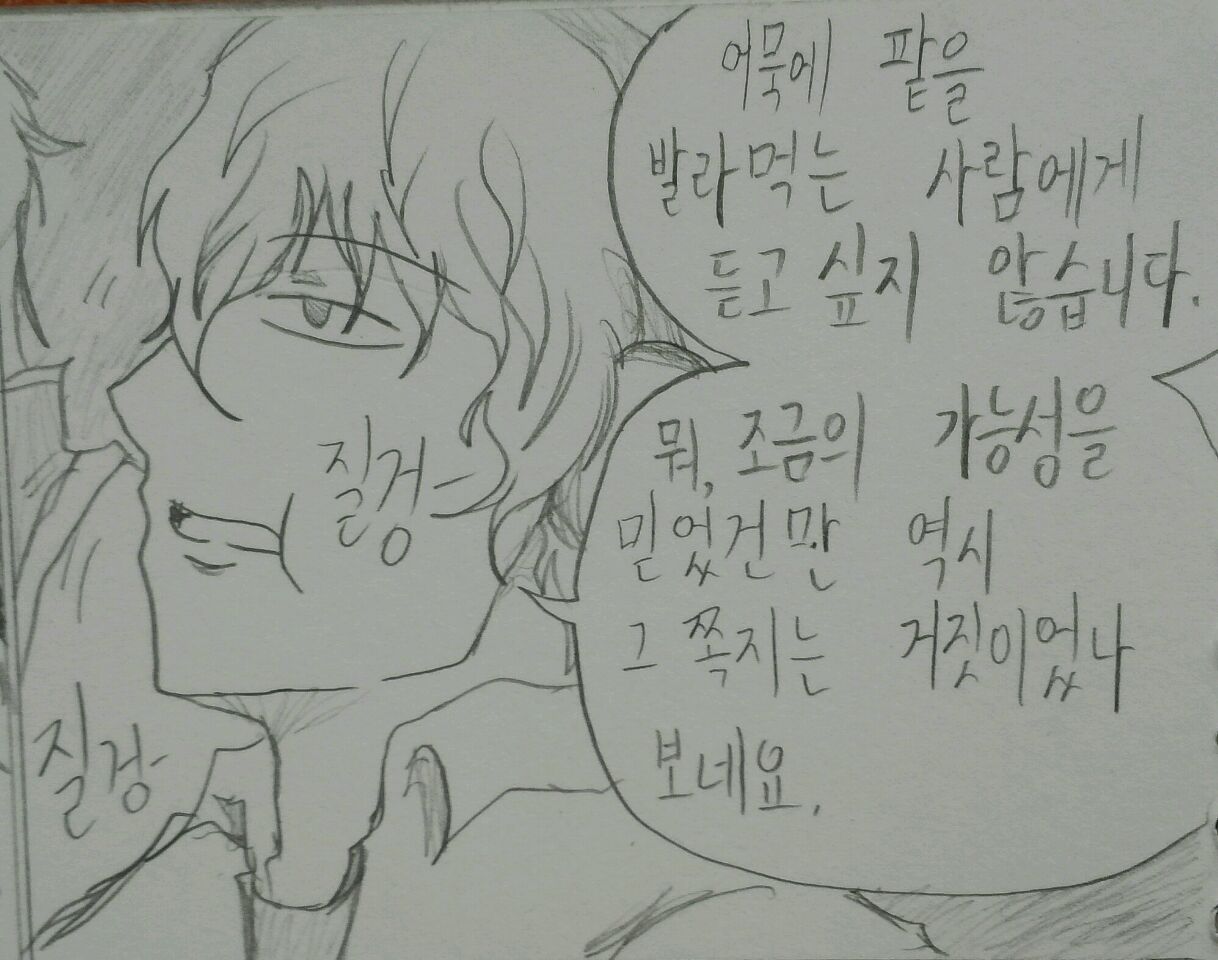 어묵에 팥을
발라먹는 사람에게
듣고싶지 않습니다.
뭐, 조금의 가능성을
믿었건만 역시
그 쪽지는 거짓이었나
보네요.
질겅
질겅